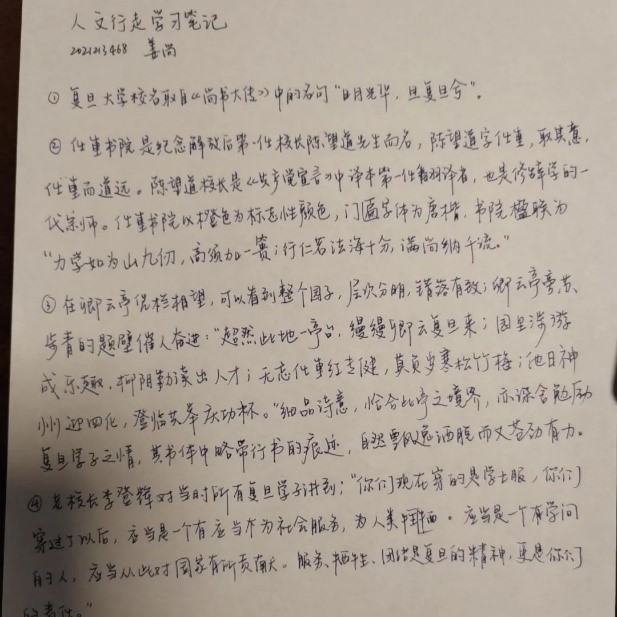 人文行走学习笔记
2021213468 姜尚
① 复旦大学校名取自《尚书大传》中的名句“日月光华，旦复旦兮”。
② 任重书院是纪念解放后第一任校长陈望道先生而名，陈望道字任重，取其意，
任重而道远。陈望道校长是《共产党宣言》中译本第一任翻译者，也是修辞学的一
代宗师。任重书院以橙色为标志性颜色，门匾字体为唐楷，书院楹联为
“力学如为山九仞，高须加一篑；行仁若法海十分，满尚纳千流。”
③ 在卿云亭凭栏相望，可以看到整个园子，层次分明，错落有致；卿云亭旁苏
步青的题壁催人奋进：“超然此地一亭台，缦缦卿云复旦来；园里涉游
成乐趣，柳阴勤读出人才；无志任重红专健，真贞岁寒松竹梅；他日神
州迎四化，登临共举庆功杯。”细品诗意，恰合此亭之境界，亦深含勉励
复旦学子之情，其书体中略带行书的痕迹，自然飘逸洒脱而又苍劲有力。
④ 老校长李登辉对当时所有复旦学子讲到：“你们现在穿的是学士服，你们
穿过了以后，应当是一个有应当作为社会服务，为人类牺牲。应当是一个有学问
的人，应当从此对国家有所贡献。服务、牺牲、团结是复旦的精神，更是你们
的责任。”